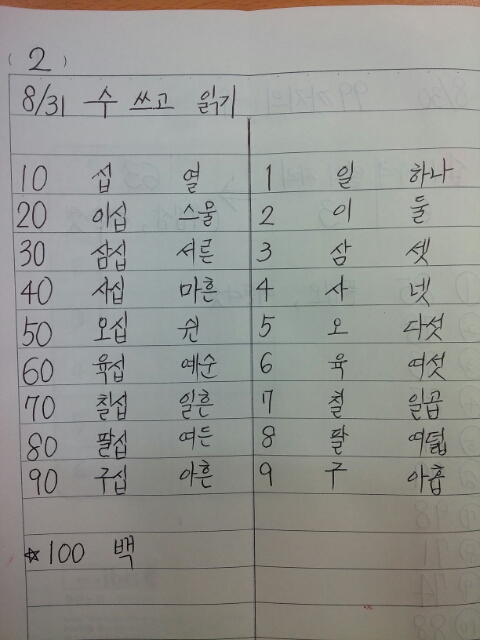 ( 2 )
8/31 수 쓰고 읽기
10 십 열 1 일 하나
20 이십 스물 2 이 둘
30 삼십 서른 3 삼 셋
40 사십 마흔 4 사 넷
50 오십 쉰 5 오 다섯
60 육십 예순 6 육 여섯
70 칠십 일흔 7 칠 일곱
80 팔십 여든 8 팔 여덟
90 구십 아흔 9 구 아홉
☆100 백